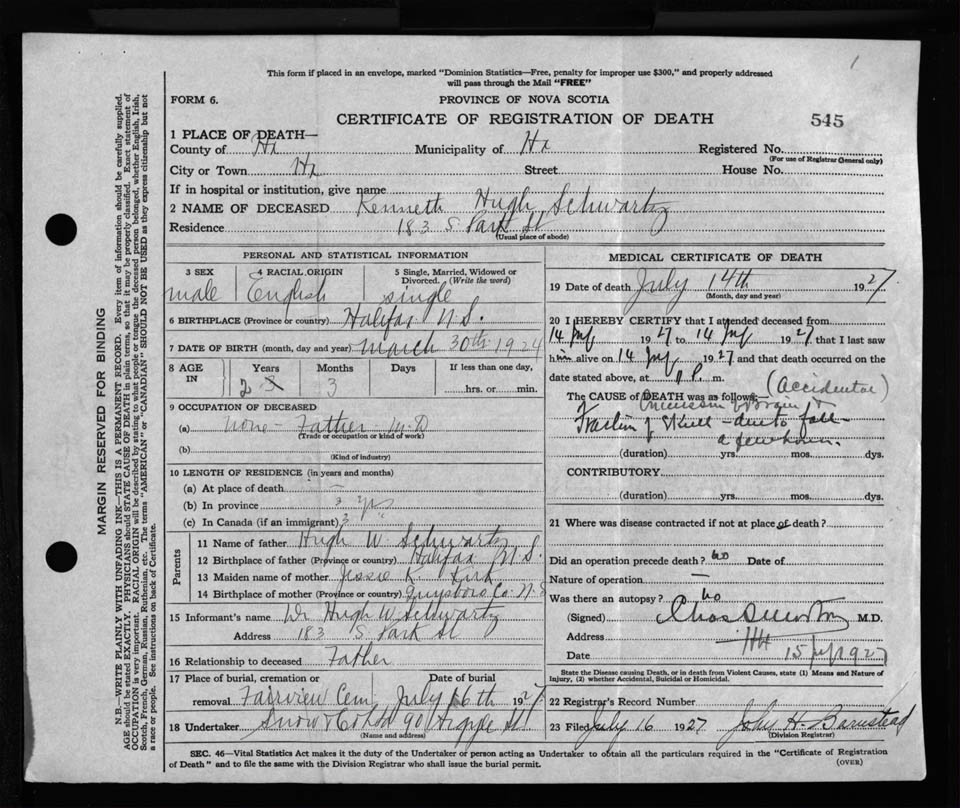 1
This form if placed in an envelope, marked "Dominion Statistics—Free, penalty for improper use $300," and properly addressed
will pass through the Mail "FREE"
FORM 6.
PROVINCE OF NOVA SCOTIA
CERTIFICATE OF REGISTRATION OF DEATH
545
1 PLACE OF DEATH—
County of Hx Municipality of Hx Registered No.
(For use of Registrar General only)
City or Town Hx Street House No.
If in hospital or institution, give name
2 NAME OF DECEASED Kenneth Hugh Schwartz
Residence 183 S. Park St
(Usual place of abode)
PERSONAL AND STATISTICAL INFORMATION
3 SEX 4 RACIAL ORIGIN 5 Single, Married, Widowed or Divorced. (Write the word)
male English single
6 BIRTHPLACE (Province or country) Halifax N.S.
7 DATE OF BIRTH (month, day and year) March 30th 1924
8 AGE IN Years Months Days If less than one day,
2 3 hrs. or min.
9 OCCUPATION OF DECEASED
(a) none - Father - M.D
(Trade or occupation or kind of work)
(b)
(Kind of industry)
10 LENGTH OF RESIDENCE (in years and months)
(a) At place of death —
(b) In province 3 yrs
(c) In Canada (if an immigrant) 3 "
Parents
11 Name of father Hugh W. Schwartz
12 Birthplace of father (Province or country) Halifax N.S.
13 Maiden name of mother Jessie K. Kirk
14 Birthplace of mother (Province or country) Guysboro Co. N.S
15 Informant's name Dr Hugh W. Schwartz
Address 183 S. Park St
16 Relationship to deceased Father
17 Place of burial, cremation or removal Date of burial
Fairview Cem July 16th 1927
18 Undertaker Snow & Co Ltd 90 Argyle St
(Name and address)
MEDICAL CERTIFICATE OF DEATH
19 Date of death July 14th 1927
(Month, day and year)
20 I HEREBY CERTIFY that I attended deceased from
14 July 1927 to 14 July 1927 that I last saw
him alive on 14 July 1927 and that death occurred on
date stated above, at P. m.
(Accidental)
The CAUSE of DEATH was as follows:—
of Brain &
Fracture of Skull - due to fall -
a few hours.
(duration) yrs. mos. dys.
CONTRIBUTORY
(duration) yrs. mos. dys.
21 Where was disease contracted if not at place of death?
Did an operation precede death? no Date of
Nature of operation —
Was there an autopsy? no
(Signed) M.D.
Address Hx
Date 15 July 1927
State the Disease causing Death, or in death from Violent Causes, state (1) Means and Nature of
Injury, (2) whether Accidental, Suicidal or Homicidal.
22 Registrar's Record Number
23 Filed July 16 1927 John H. Barnstead
(Division Registrar)
SEC. 46—Vital Statistics Act makes it the duty of the Undertaker or person acting as Undertaker to obtain all the particulars required in the "Certificate of Registration
of Death" and to file the same with the Division Registrar who shall issue the burial permit.
(OVER)
MARGIN RESERVED FOR BINDING
N.B.—WRITE PLAINLY WITH UNFADING INK—THIS IS A PERMANENT RECORD. Every item of information should be carefully supplied.
AGE should be stated EXACTLY. PHYSICIANS should STATE CAUSE OF DEATH in plain terms, so that it may be properly classified. Exact statement of
OCCUPATION is very important. RACIAL ORIGIN will be described by stating to what people or tongue the deceased person belonged, whether English, Irish,
Scotch, French, German, Russian, Ruthenian, etc. The terms "AMERICAN" or "CANADIAN" SHOULD NOT BE USED as they express citizenship but not
a race or people. See instructions on back of Certificate.